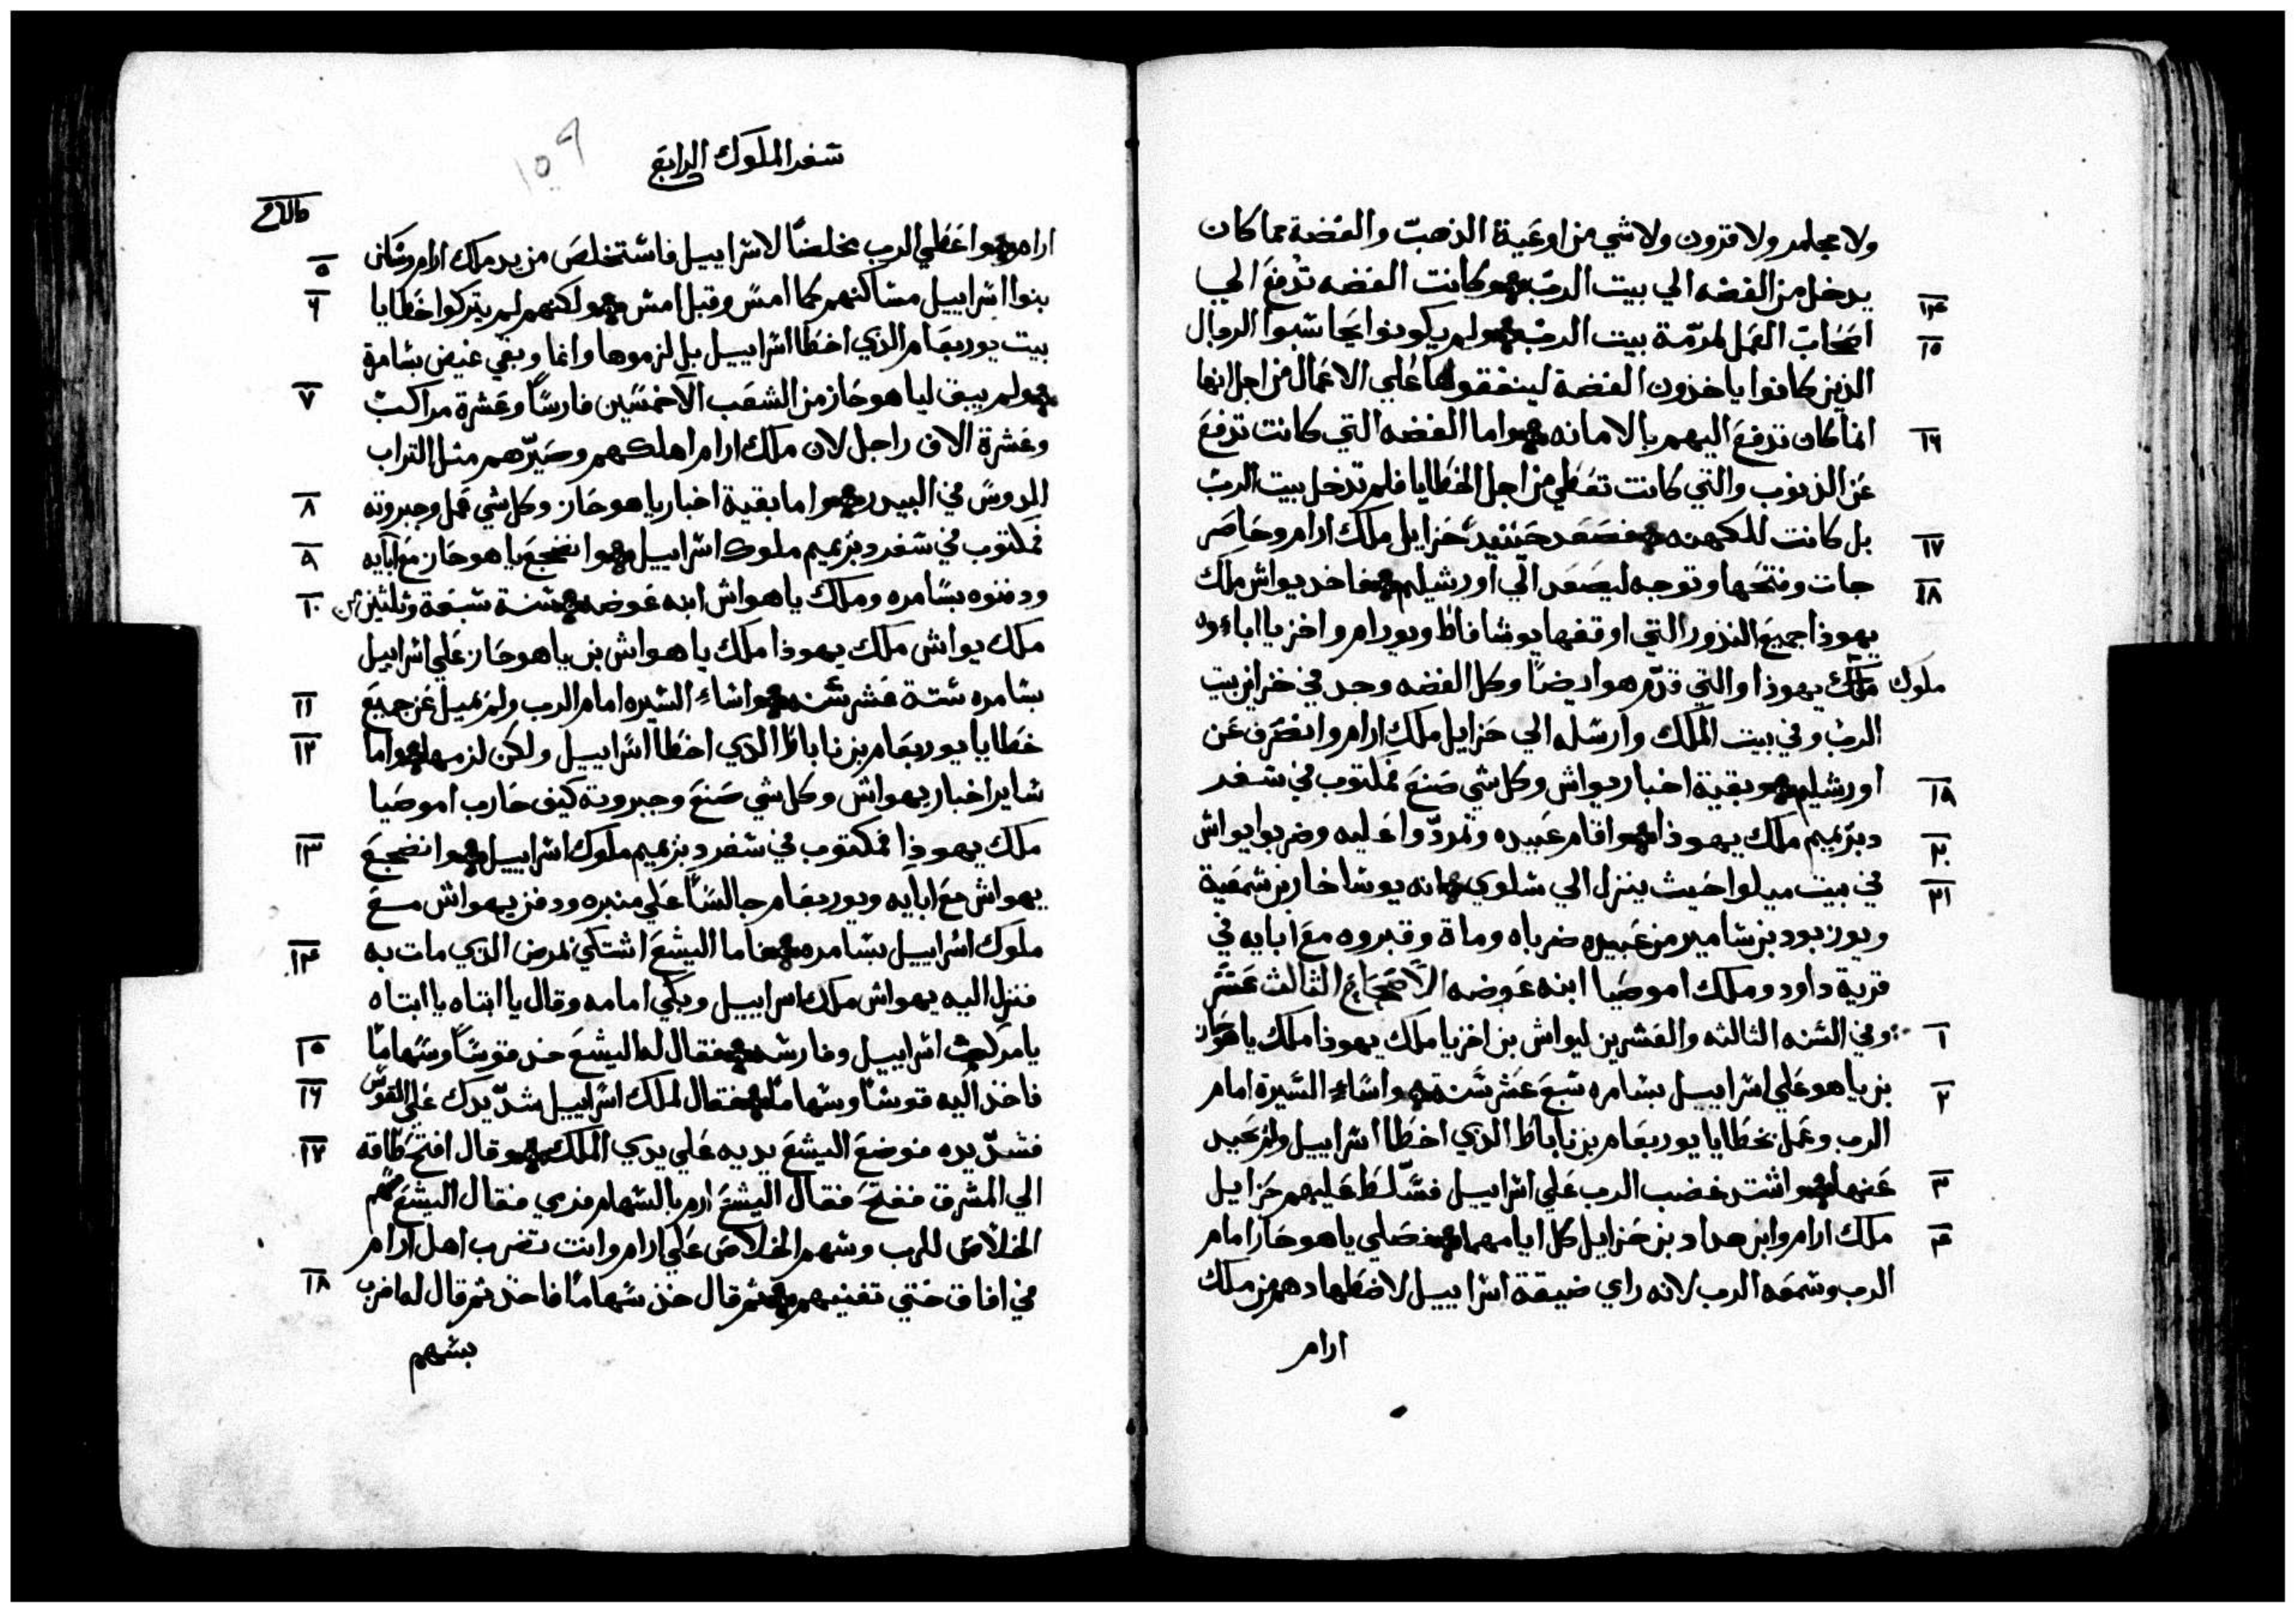 ولا مجامر ولا قرون ولا شي من اوعية الذهب والفضة مما كان
١٤ يدخل من الفضه الي بيت الرب وكانت الفضه تدفع الي
١٥ اصحاب العمل لمرمة بيت الرب ولم يكونوا يحاسبوا الرجال
الذين كانوا ياخذون الفضة لينفقوها علي الاعمال من اجل انها
١٦ انما كان تدفع اليهم بالامانه واما الفضه التي كانت تدفع
عن الذنوب والتي كانت تعطي من اجل الخطايا فلم تدخل بيت الرب
١٧ بل كانت للكهنه فصعد حينيد حزايل ملك ارام وحاصر
١٨ جات وفتحها وتوجه ليصعد الي اورشيلم فاخد يواش ملك
يهوذا جميع النذور التي اوقفها يوشافاط ويورام واخزيا اباءوه
ملوك يهوذا والتي قدم هو ايضا وكل الفضه وجد في خزاين بيت
الرب وفي بيت الملك وارسله الي حزايل ملك ارام وانصرف عن
١٩ اورشيلم وبقية اخبار يواش وكل شي صنع مكتوب في سفر
٢٠ دبريميم ملك يهوذا واقام عبيده وتمردوا عليه وضربوا يواش
٢١ في بيت ميلوا حيث ينزل الي سلوي فانه يوساخار بن شمعية
ويوزبود بن شامير من عبيده ضرباه وماة وقبروه مع ابايه في
قرية داود وملك اموصيا ابنه عوضه الاصحاح الثالث عشر
١ وفي السنه الثالثه والعشرين ليواش بن اخزيا ملك يهوذا ملك ياهوحاز
٢ بن ياهو علي اسراييل بسامره سبع عشر سنة واساء السيرة امام
الرب وعمل بخطايا يوربعام بن ناباط الذي اخطا اسراييل ولم يحيد
٣ عنها واشتد غضب الرب علي اسراييل فسلط عليهم حزايل
٤ ملك ارام وابن هداد بن حزايل كل ايامهما فصلي ياهوحاز امام
الرب وسمعه الرب لانه راي ضيقة اسراييل لاضطهادهم من ملك
ارام
سفر الملوك الرابع
١٥٩
ارام واعطي الرب مخلصا لاسراييل فاستخلص من يد ملك ارام وسكن ٥
بنوا اسراييل مساكنهم كما امس وقبل امس ولكنهم لم يتركوا خطايا ٦
بيت يوربعام الذي اخطا اسراييل بل لزموها وانما وبقي غيض بسامرة
ولم يبق لياهوحاز من الشعب الا خمسين فارسا وعشرة مراكب ٧
وعشرة الاف راجل لان ملك ارام اهلكهم وصيرهم مثل التراب
المدوس في البيدر واما بقية اخبار ياهوحاز وكل شي عمل وجبروته ٨
فمكتوب في سفر دبريميم ملوك اسراييل وانضجع ياهوحاز مع ابايه ٩
ودفنوه بسامره وملك ياهواش ابنه عوضه سنة سبعة وثلثين من ١٠
ملك يواش ملك يهوذا ملك ياهواش بن ياهوحاز علي اسراييل
بسامره ستة عشر سنه واساء السيره امام الرب ولم يميل عن جميع ١١
خطايا يوربعام بن ناباط الذي اخطا اسراييل ولكن لزمها واما ١٢
ساير اخبار يهواش وكل شي صنع وجبروته كيف حارب اموصيا
ملك يهوذا فمكتوب في سفر دبريميم ملوك اسراييل وانضجع ١٣
يهواش مع ابايه ويوربعام جالسا علي منبره ودفن يهواش مع
ملوك اسراييل بسامره فاما اليشع اشتكي لمرض الذي مات به ١٤
فنزل اليه يهواش ملك اسراييل وبكي امامه وقال يا ابتاه يا ابتاه
يا مركب اسراييل وفارسه فقال له اليشع خذ قوسا وسهاما ١٥
فاخذ اليه قوسا وسهاما فقال لملك اسراييل شد يدك علي القوس ١٦
فشد يده فوضع اليشع يديه علي يدي الملك وقال افتح طاقه ١٧
الي المشرق ففتح فقال اليشع ارم بالسهام فرمي فقال اليشع سهم
الخلاص للرب وسهم الخلاص علي ارام وانت تضرب اهل ارام
في افاق حتي تفنيهم ثم قال خذ سهاما فاخذ ثم قال له اضرب ١٨
بسهم